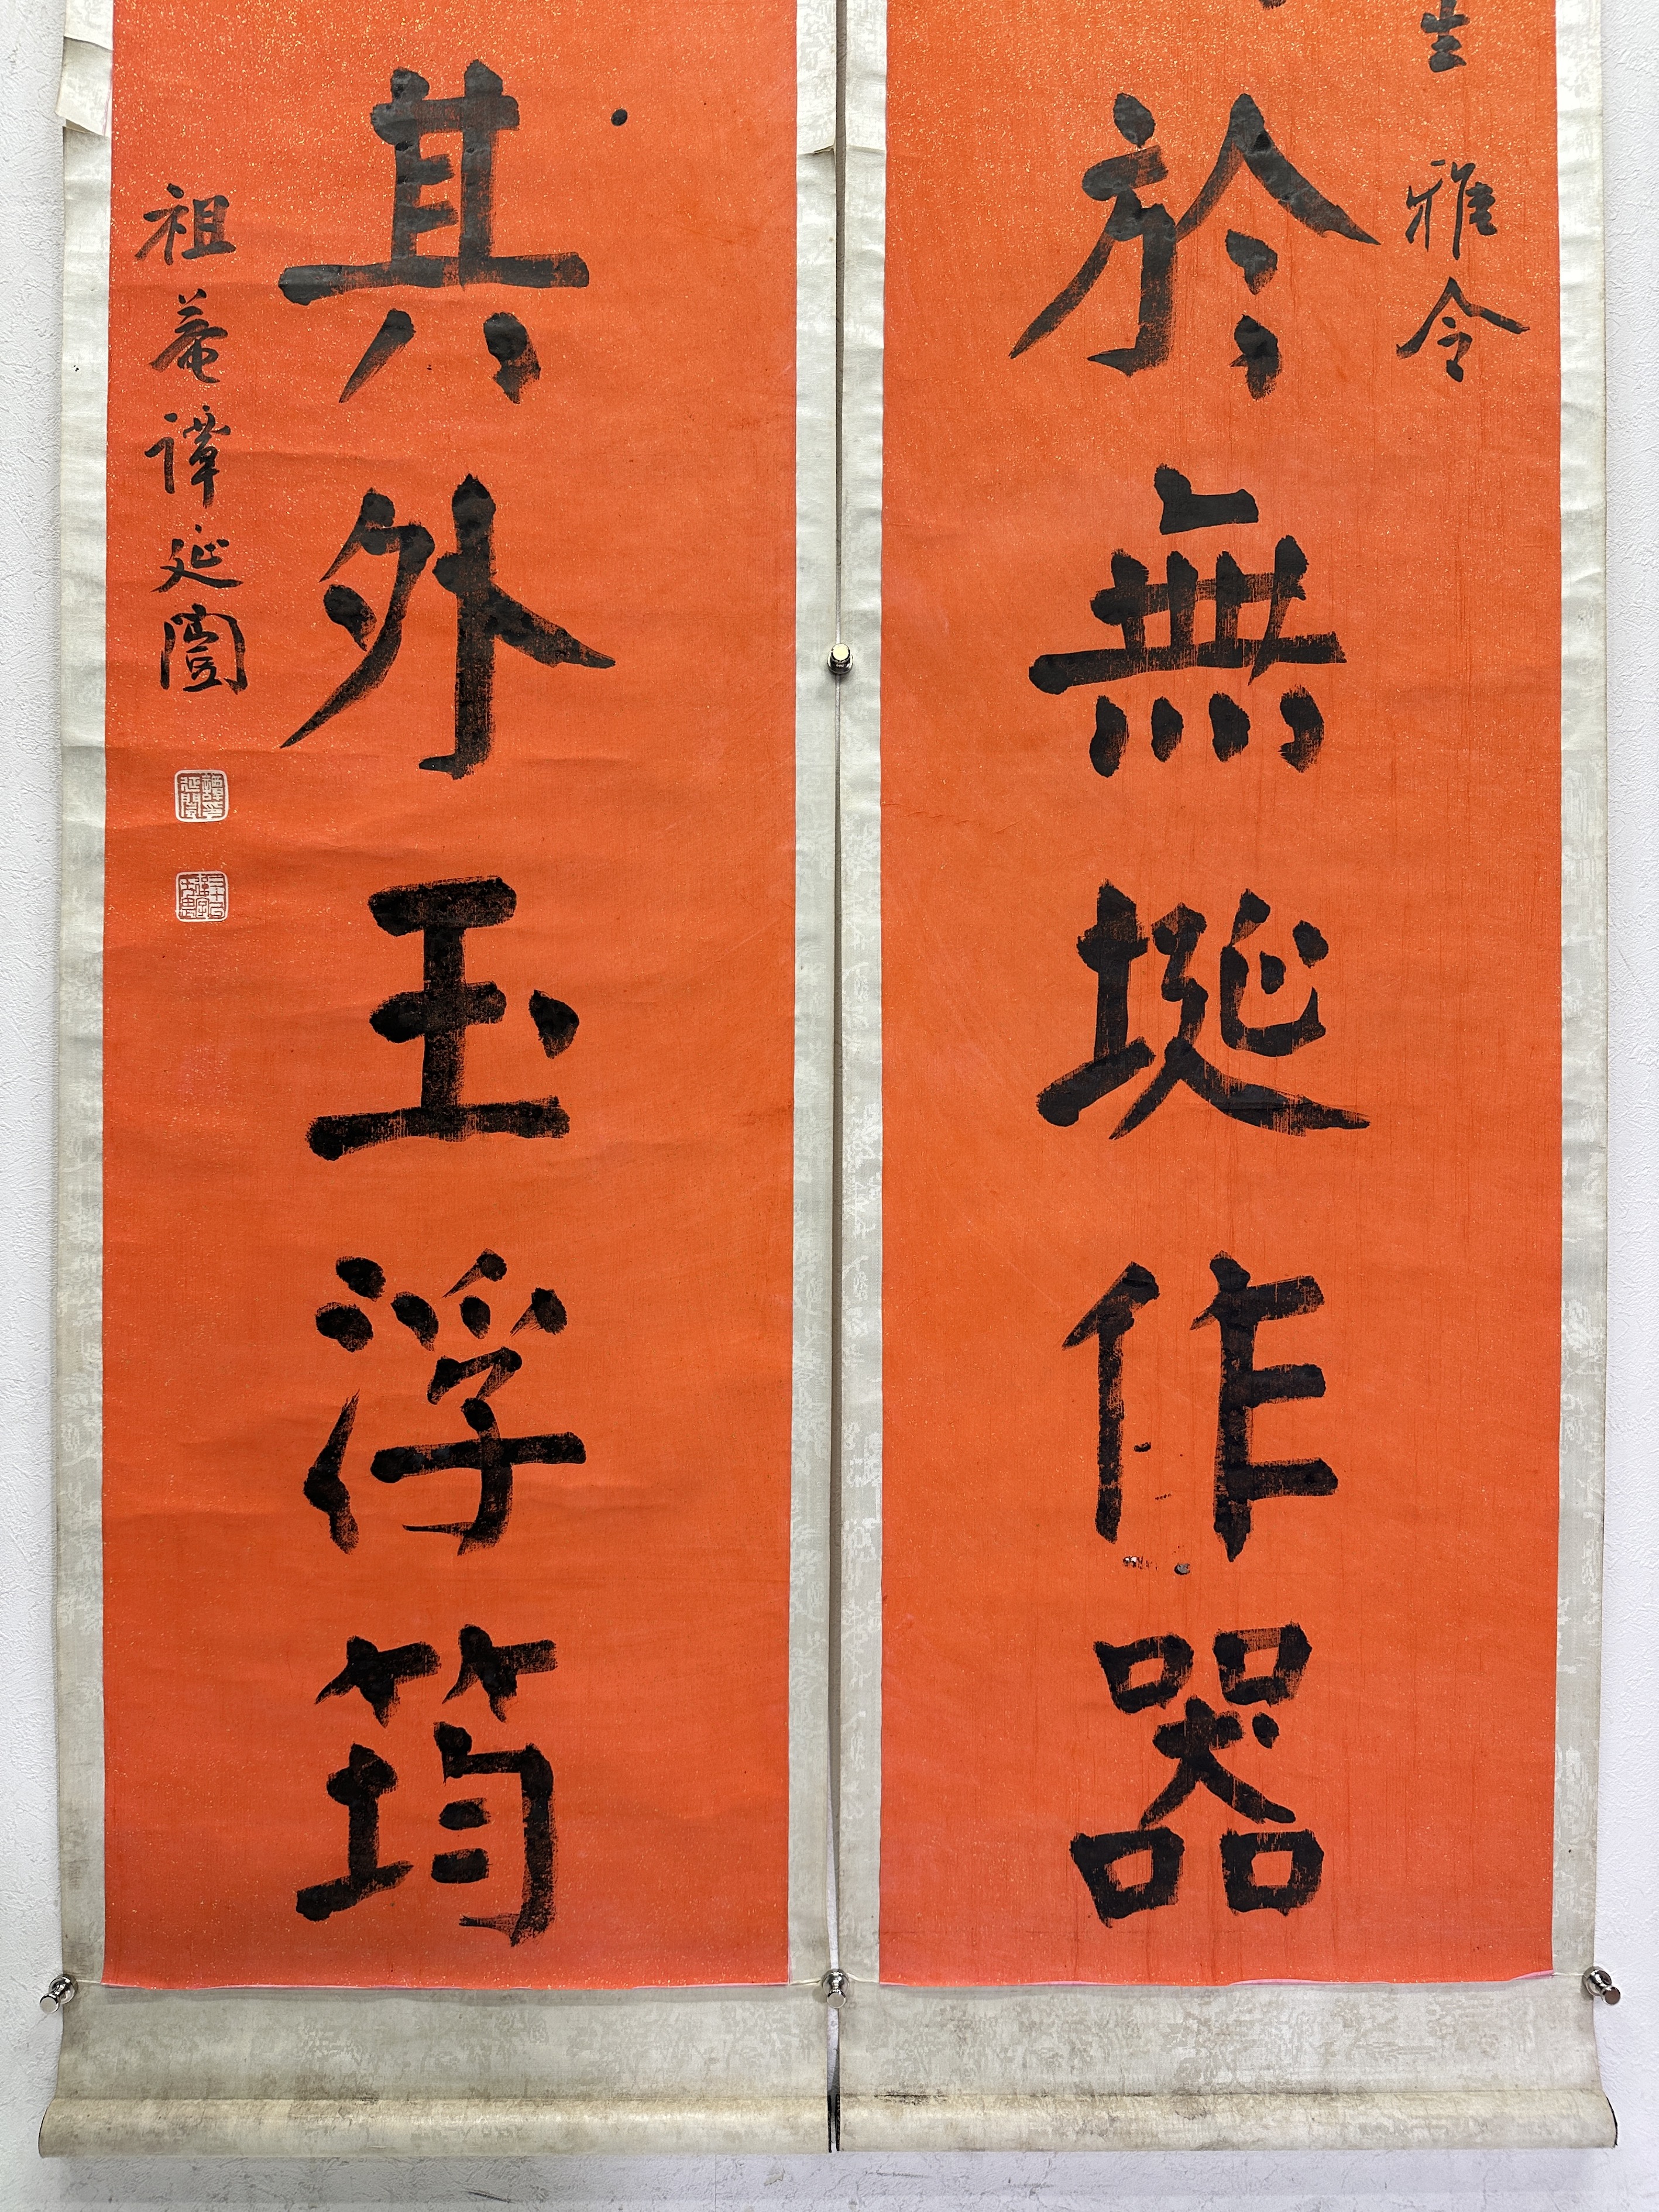 生雅令
於無埏作器
其外玉浮筠
祖菴譚延闓
譚延闓印